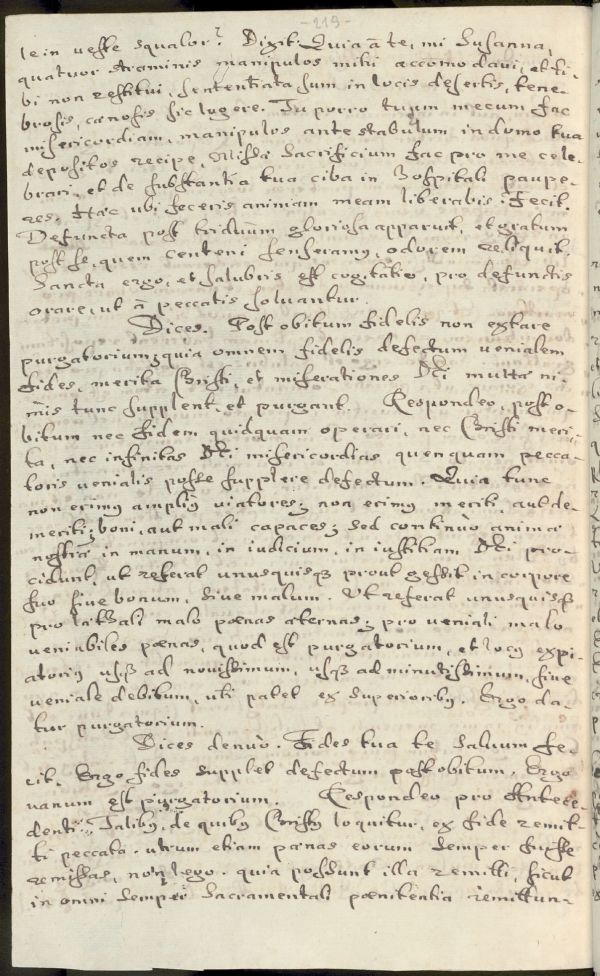 -219-
le in veste squalor? Digit: Quia à te, mi Susanna,
quatuor straminis manipulos mihi accomodavi, et ti-
bi non restitui, sententiata sum in locis desertis, tene-
brosis, cænosis sic lugere. Tu porro tuam mecum fac
misericordiam, manipulos ante stabulum in domo tua
depositos recipe, Missæ Sacrificium fac pro me cele-
brari, et de substantia tua ciba in Hospitali paupe-
res. Hæc ubi feceris animam meam liberabis: fecit.
Defuncta post triduum gloriosa apparuit, et gratum
post se, quem centeni senserunt, odorem reliquit.
Sancta ergo, et salubris est cogitatio, pro defunctis
orare, ut à peccatis solvantur.
Dices. Post obitum fidelis non extare
purgatorium; quia omnem fidelis defectum venialem
fides, merita Christi, et miserationes Dei multæ ni-
mis tunc supplent, et purgant. Respondeo, post o-
bitum nec fidem quidquam operari, nec Christi meri-
ta, nec infinitas Dei misericordias quenquam pecca-
toris venialis posse supplere defectum. Quia tunc
non erimus amplius viatores; non erimus meriti, aut de-
meriti; boni, aut mali capaces; sed continuo animæ
nostræ in manum, in iudicium, in iustitiam Dei pro-
cidunt, ut referat unusquisq3 prout gessit in corpore
suo sive bonum, sive malum. Ut referat unusquisq3
pro lethali malo pænas æternas; pro veniali malo
veniabiles pænas, quod est purgatorium, et locus expi-
atorius usq3 ad novissimum, usq3 ad minutissimum, sive
veniale debitum, uti patet ex superioribus. Ergo da-
tur purgatorium.
Dices denuò. Fides tua te salvum fe-
cit. Ergo fides supplet defectum post obitum. Ergo
vanum est purgatorium. Respondeo pro Antece-
denti. Talibus, de quibus Christus loquitur, ex fide remit-
ti peccata. utrum etiam pænas eorum semper fuisse
remissas, non lego. quia possunt illa remitti, sicut
in omni semper Sacramentali pænitentia remittun-